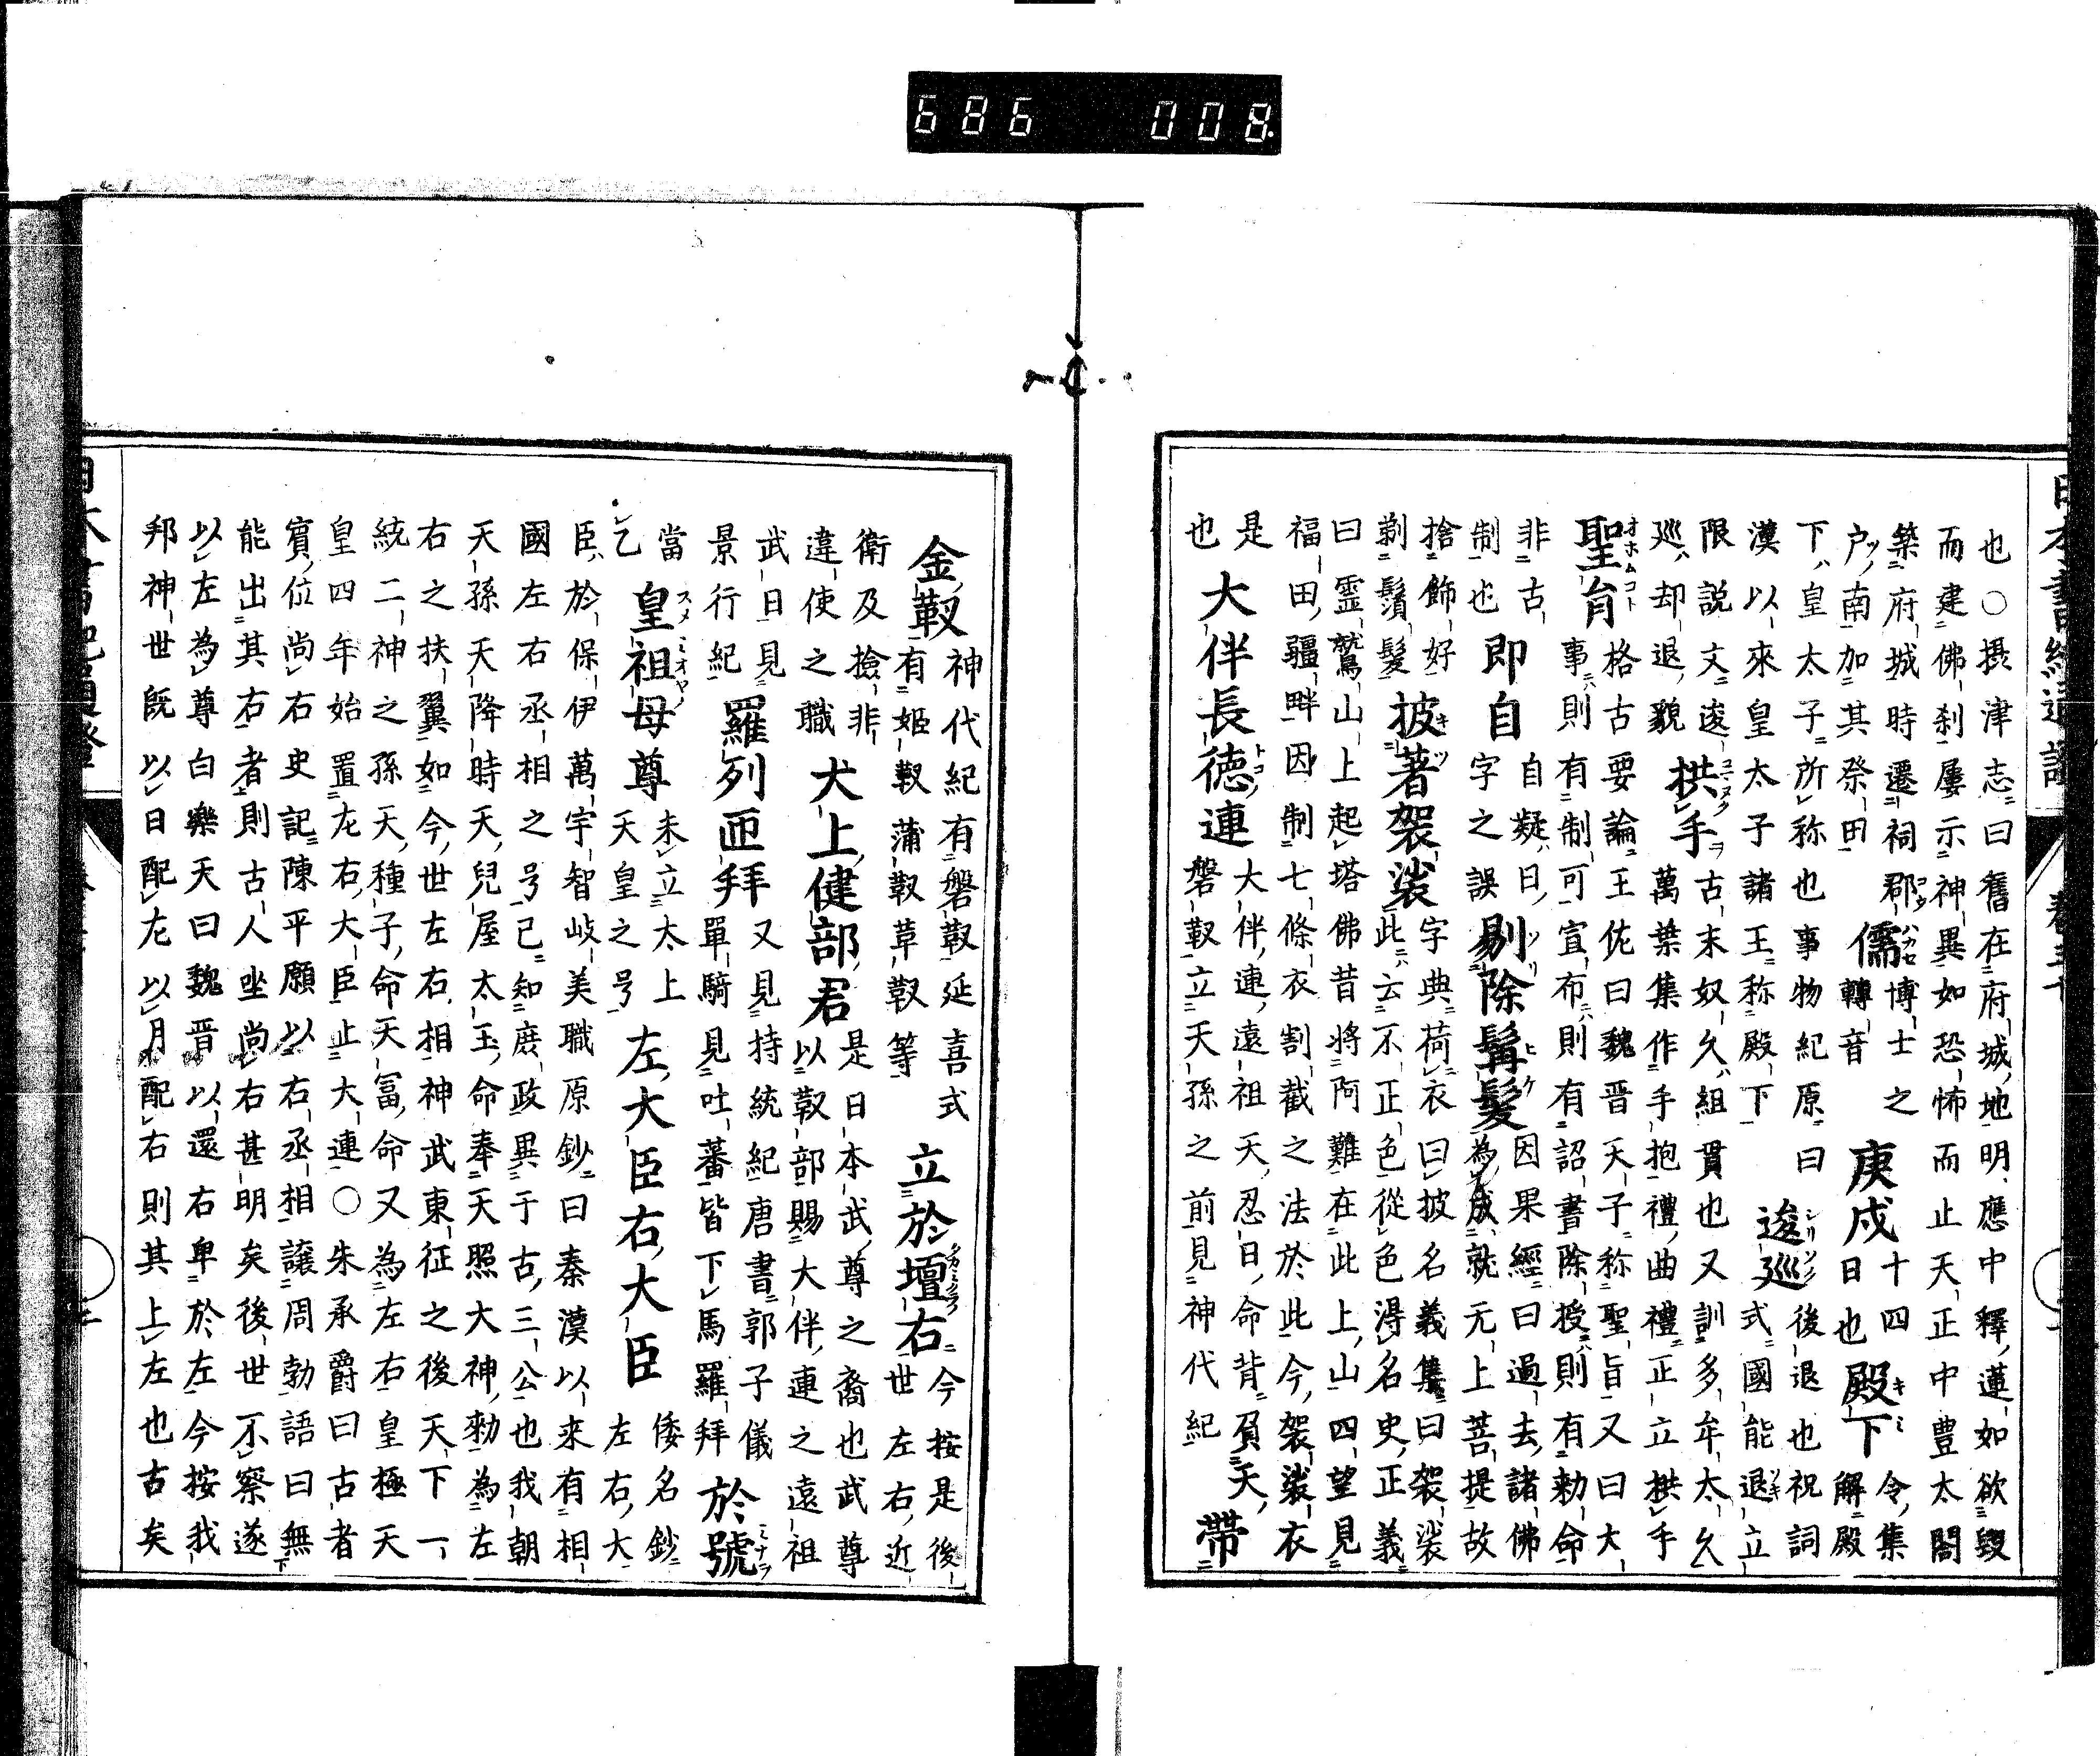 686 008
也○摂津志曰舊在府城地明應中釋蓮如欲毀
而建佛刹屢示神異如恐怖而止天正中豊太閤
築府城時遷祠郡 儒 博士之轉音 庚戌 十四日也 殿下 令集解殿
戸南加其祭田
下皇太子所称也事物紀原曰 逡巡 後退也祝詞式國能退立
漢以來皇太子諸王称殿下
限説文逡 拱手 古末奴久組貫也又訓多牟太久
巡却退貌 萬葉集作手抱禮曲禮正立拱手
聖旨 格古要論王佐曰魏晋天子称聖旨又曰大
事則有制可宣布則有詔書除授則有勅命
非古制也 即自 自疑日字之誤 剔除髯髮 因果經曰過去諸佛為成就无上菩提故
捨飾好剃鬚髮 披著袈裟 字典荷衣曰披名義集曰袈裟
此云不正色從色得名史正義
曰霊鷲山上起塔佛昔將阿難在此上山四望見
福田疆畔因制七條衣割截之法於此今袈裟衣
是也 大伴長徳連 大伴連遠祖天忍日命背負天
磐靫立天孫之前見神代紀 帶
金靫 神代紀有磐靫延喜式有姫靫蒲靫草靫等 立於壇右 今按是後世左右近
衛及撿非違使之職 犬上健部君 是日本武尊之裔也武尊
以靫部賜大伴連之遠祖
武日見景行紀 羅列匝拜 又見持統紀唐書郭子儀
單騎見吐蕃皆下馬羅拜 於號
當乞 皇祖母尊 未立太上天皇之号 左大臣右大臣 倭名鈔左右大
臣於保伊萬宇智岐美職原鈔曰秦漢以来有相
國左右丞相之号已知庶政異于古三公也我朝
天孫天降時天兒屋太玉命奉天照大神勅為左
右之扶翼如今世左右相神武東征之後天下一
統二神之孫天種子命天冨命又為左右皇極天
皇四年始置左右大臣止大連○朱承爵曰古者
賓位尚右史記陳平願以右丞相讓周勃語曰無
能出其右者則古人坐尚右甚明矣後世不察遂
以左為尊白樂天曰魏晋以還右卑於左今按我
邦神世既以日配左以月配右則其上左也古矣